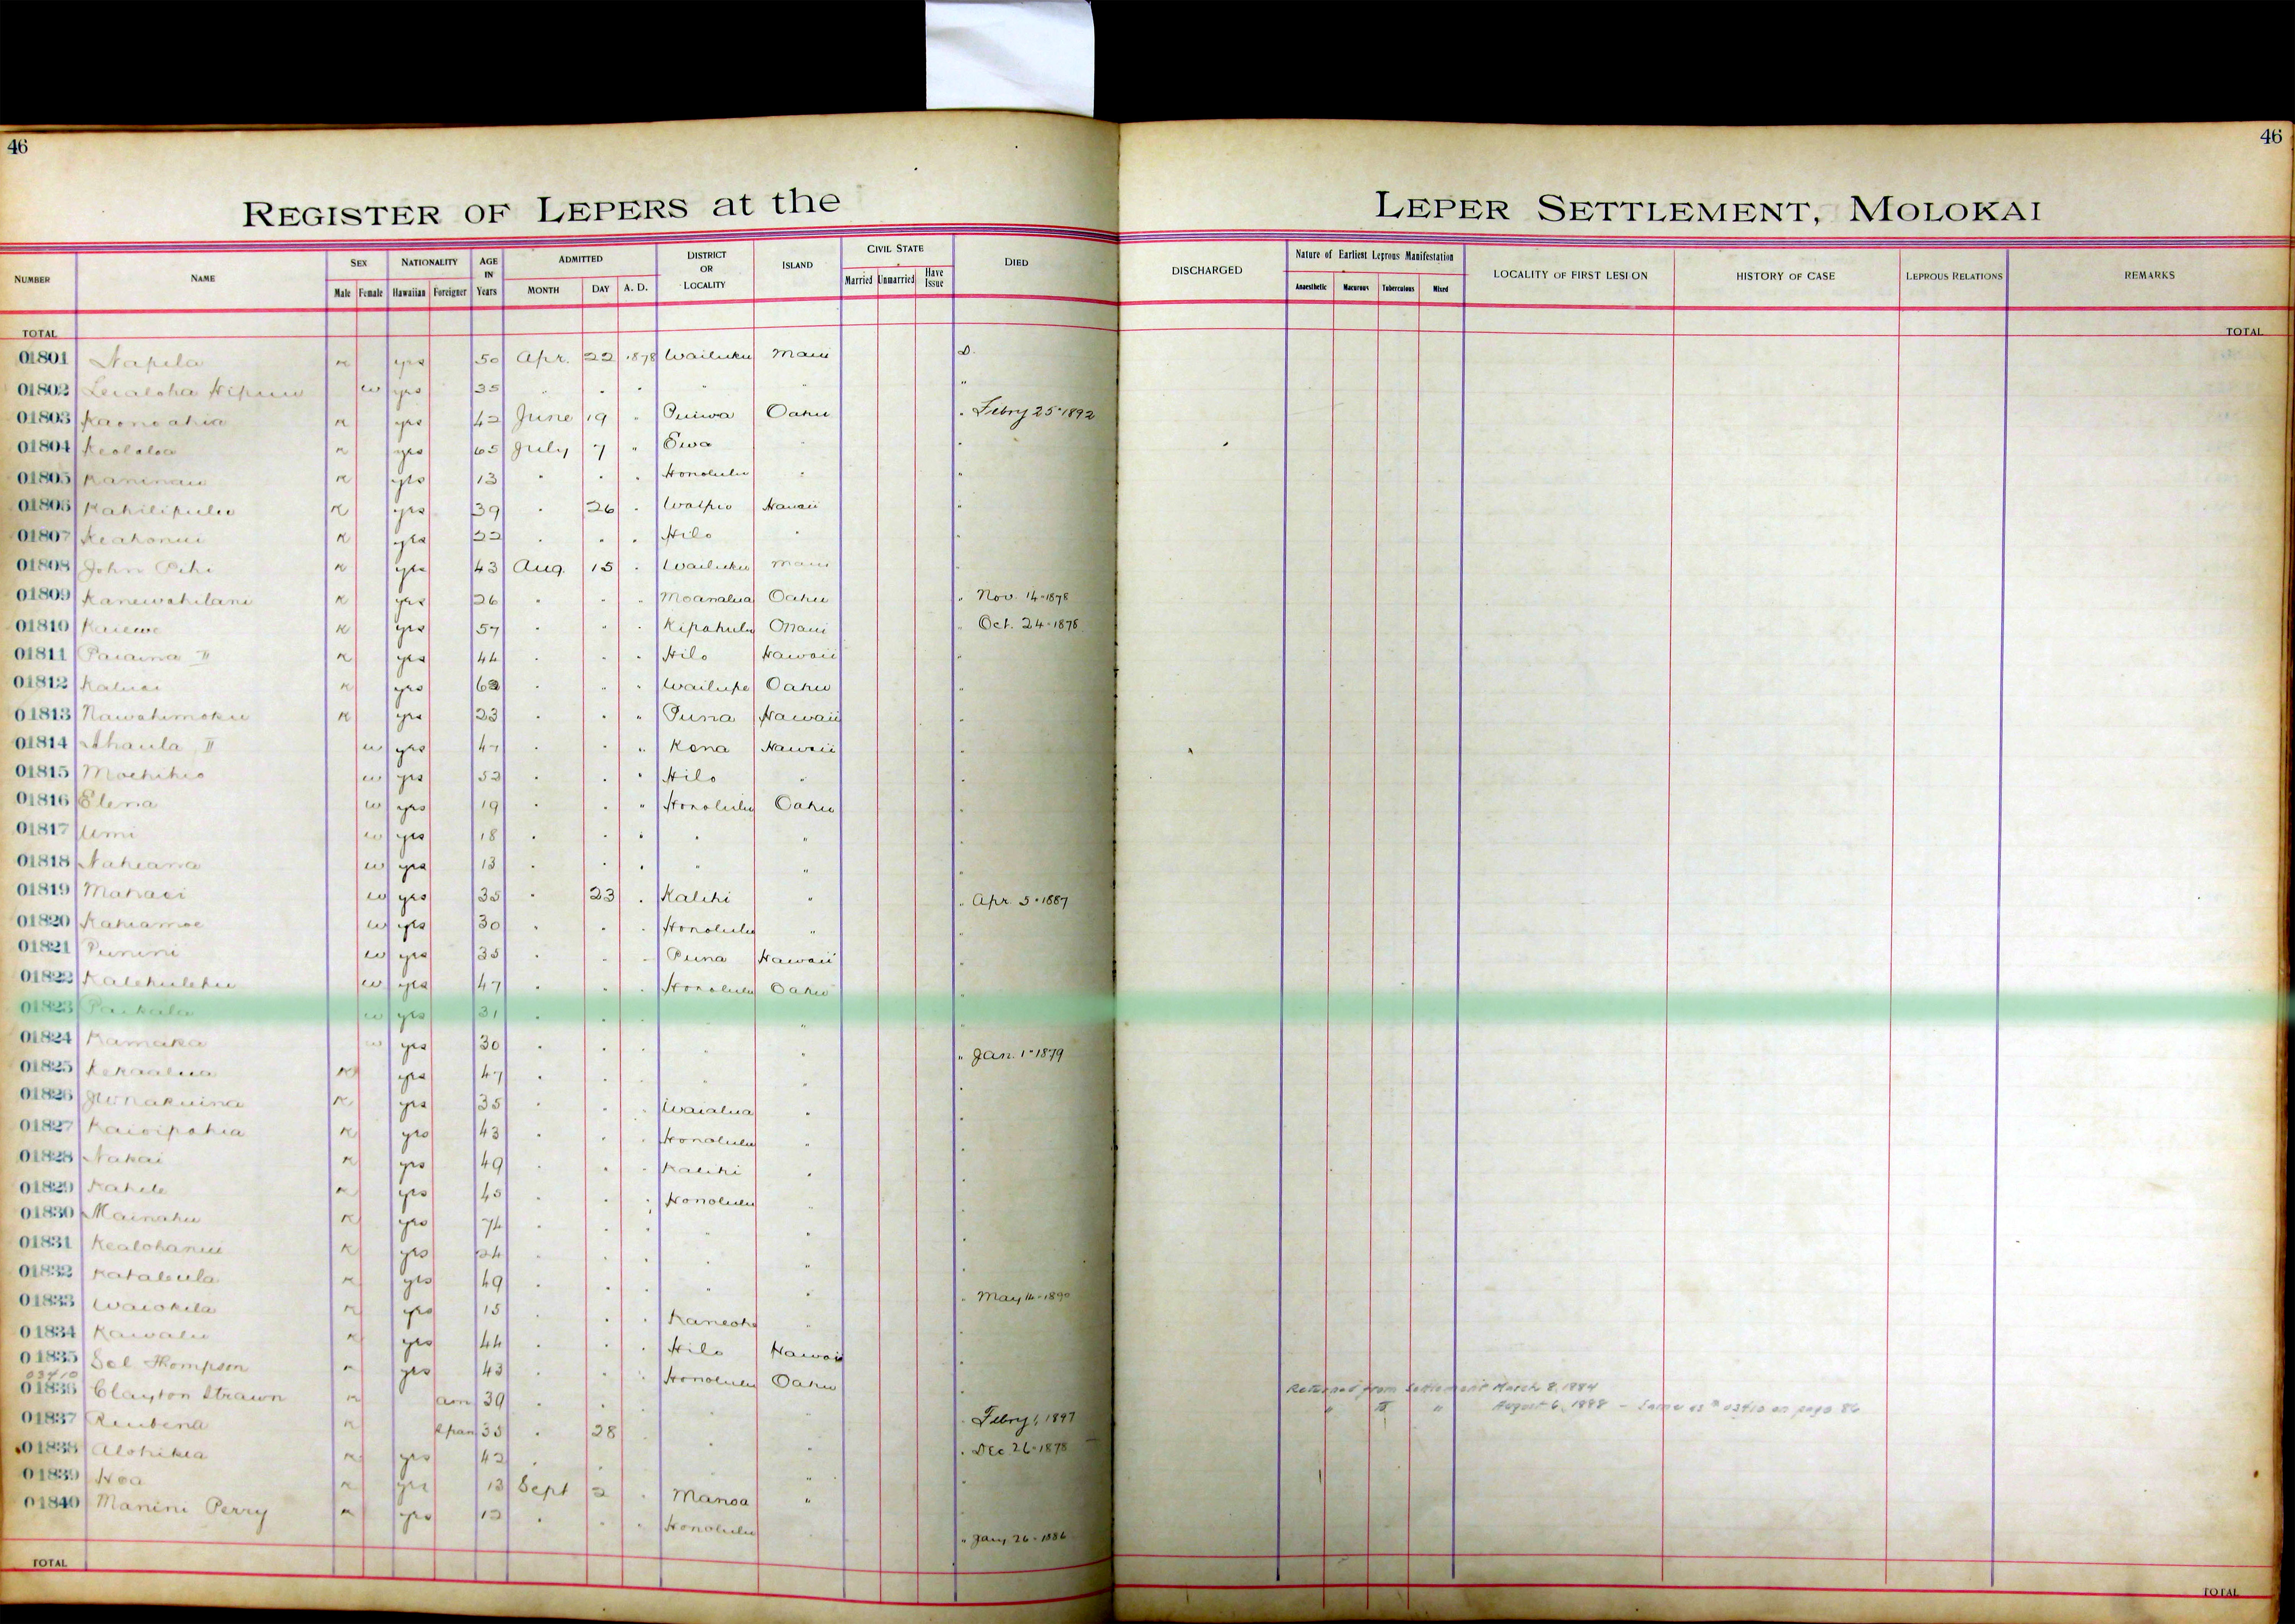 46
46
REGISTER OF LEPERS at the LEPER SETTLEMENT, MOLOKAI
NUMBER NAME SEX NATIONALITY AGE IN Years ADMITTED DISTRICT OR LOCALITY ISLAND CIVIL STATE DIED DISCHARGED Nature of Earliest Leprous Manifestation LOCALITY OF FIRST LESION HISTORY OF CASE LEPROUS RELATIONS REMARKS
Male Female Hawaiian Foreigner MONTH DAY A. D. Married Unmarried Have Issue Anaesthetic Macurous Tuberculous Mixed
TOTAL TOTAL
01801 Napela m yes 50 Apr. 22 1878 Wailuku Maui D.
01802 Leialoha Hipuu w yes 35 " " " " " "
01803 Kaonoahia m yes 42 June 19 " Puiwa Oahu " Febry 25-1892
01804 Keololoa m yes 65 July 7 " Ewa " "
01805 Kaninau m yes 13 " " " Honolulu " "
01806 Kahilipulu m yes 39 " 26 " Waipio Hawaii "
01807 Keahonui m yes 22 " " " Hilo " "
01808 John Pihi m yes 43 Aug. 15 " Wailuku Maui "
01809 Kanewahilani m yes 26 " " " Moanalua Oahu " Nov. 14-1878
01810 Kaiewe m yes 57 " " " Kipahulu Maui " Oct. 24-1878
01811 Paiaina II m yes 44 " " " Hilo Hawaii "
01812 Kaluai m yes 62 " " " Wailupe Oahu "
01813 Nawahimoku m yes 23 " " " Puna Hawaii "
01814 Ahaula II w yes 47 " " " Kona Hawaii "
01815 Moehihio w yes 52 " " " Hilo " "
01816 Elena w yes 19 " " " Honolulu Oahu "
01817 Umi w yes 18 " " " " " "
01818 Nahiana w yes 13 " " " " " "
01819 Mahaei w yes 35 " 23 " Kalihi " " Apr. 5-1887
01820 Kahiamoe w yes 30 " " " Honolulu " "
01821 Punini w yes 35 " " " Puna Hawaii "
01822 Kalehulehu w yes 47 " " " Honolulu Oahu "
01823 Paikala w yes 31 " " " " "
01824 Kamaka w yes 30 " " " " " " Jan. 1-1879
01825 Kekaalua m yes 47 " " " " "
01826 m yes 35 " " " Waialua " "
01827 Kaioipahia m yes 43 " " " Honolulu " "
01828 Nakai m yes 49 " " " Kalihi " "
01829 Kahele m yes 45 " " " Honolulu " "
01830 Mainahu m yes 74 " " " " " "
01831 Kealohanui m yes 24 " " " " " "
01832 Kahaleula m yes 49 " " " " " " May 14-1890
01833 Waiohila m yes 15 " " " Kaneohe " "
01834 Kawalu m yes 44 " " " Hilo Hawaii "
01835 Sol Thompson m yes 43 " " " Honolulu Oahu "
03410
01836 Clayton Strawn m am 39 " " " " " " Febry 1, 1897 Returned from Settlement March 8, 1884
" " " August 6, 1888 - Same as # 03410 on page 86
01837 Reubena m Span 35 " 28 " " " " Dec 26-1878
01838 Alohikea m yes 42 " " " "
01839 Hoa m yes 13 Sept 2 " Manoa "
01840 Manini Perry m yes 12 " " " Honolulu " Jany 26-1886
TOTAL TOTAL